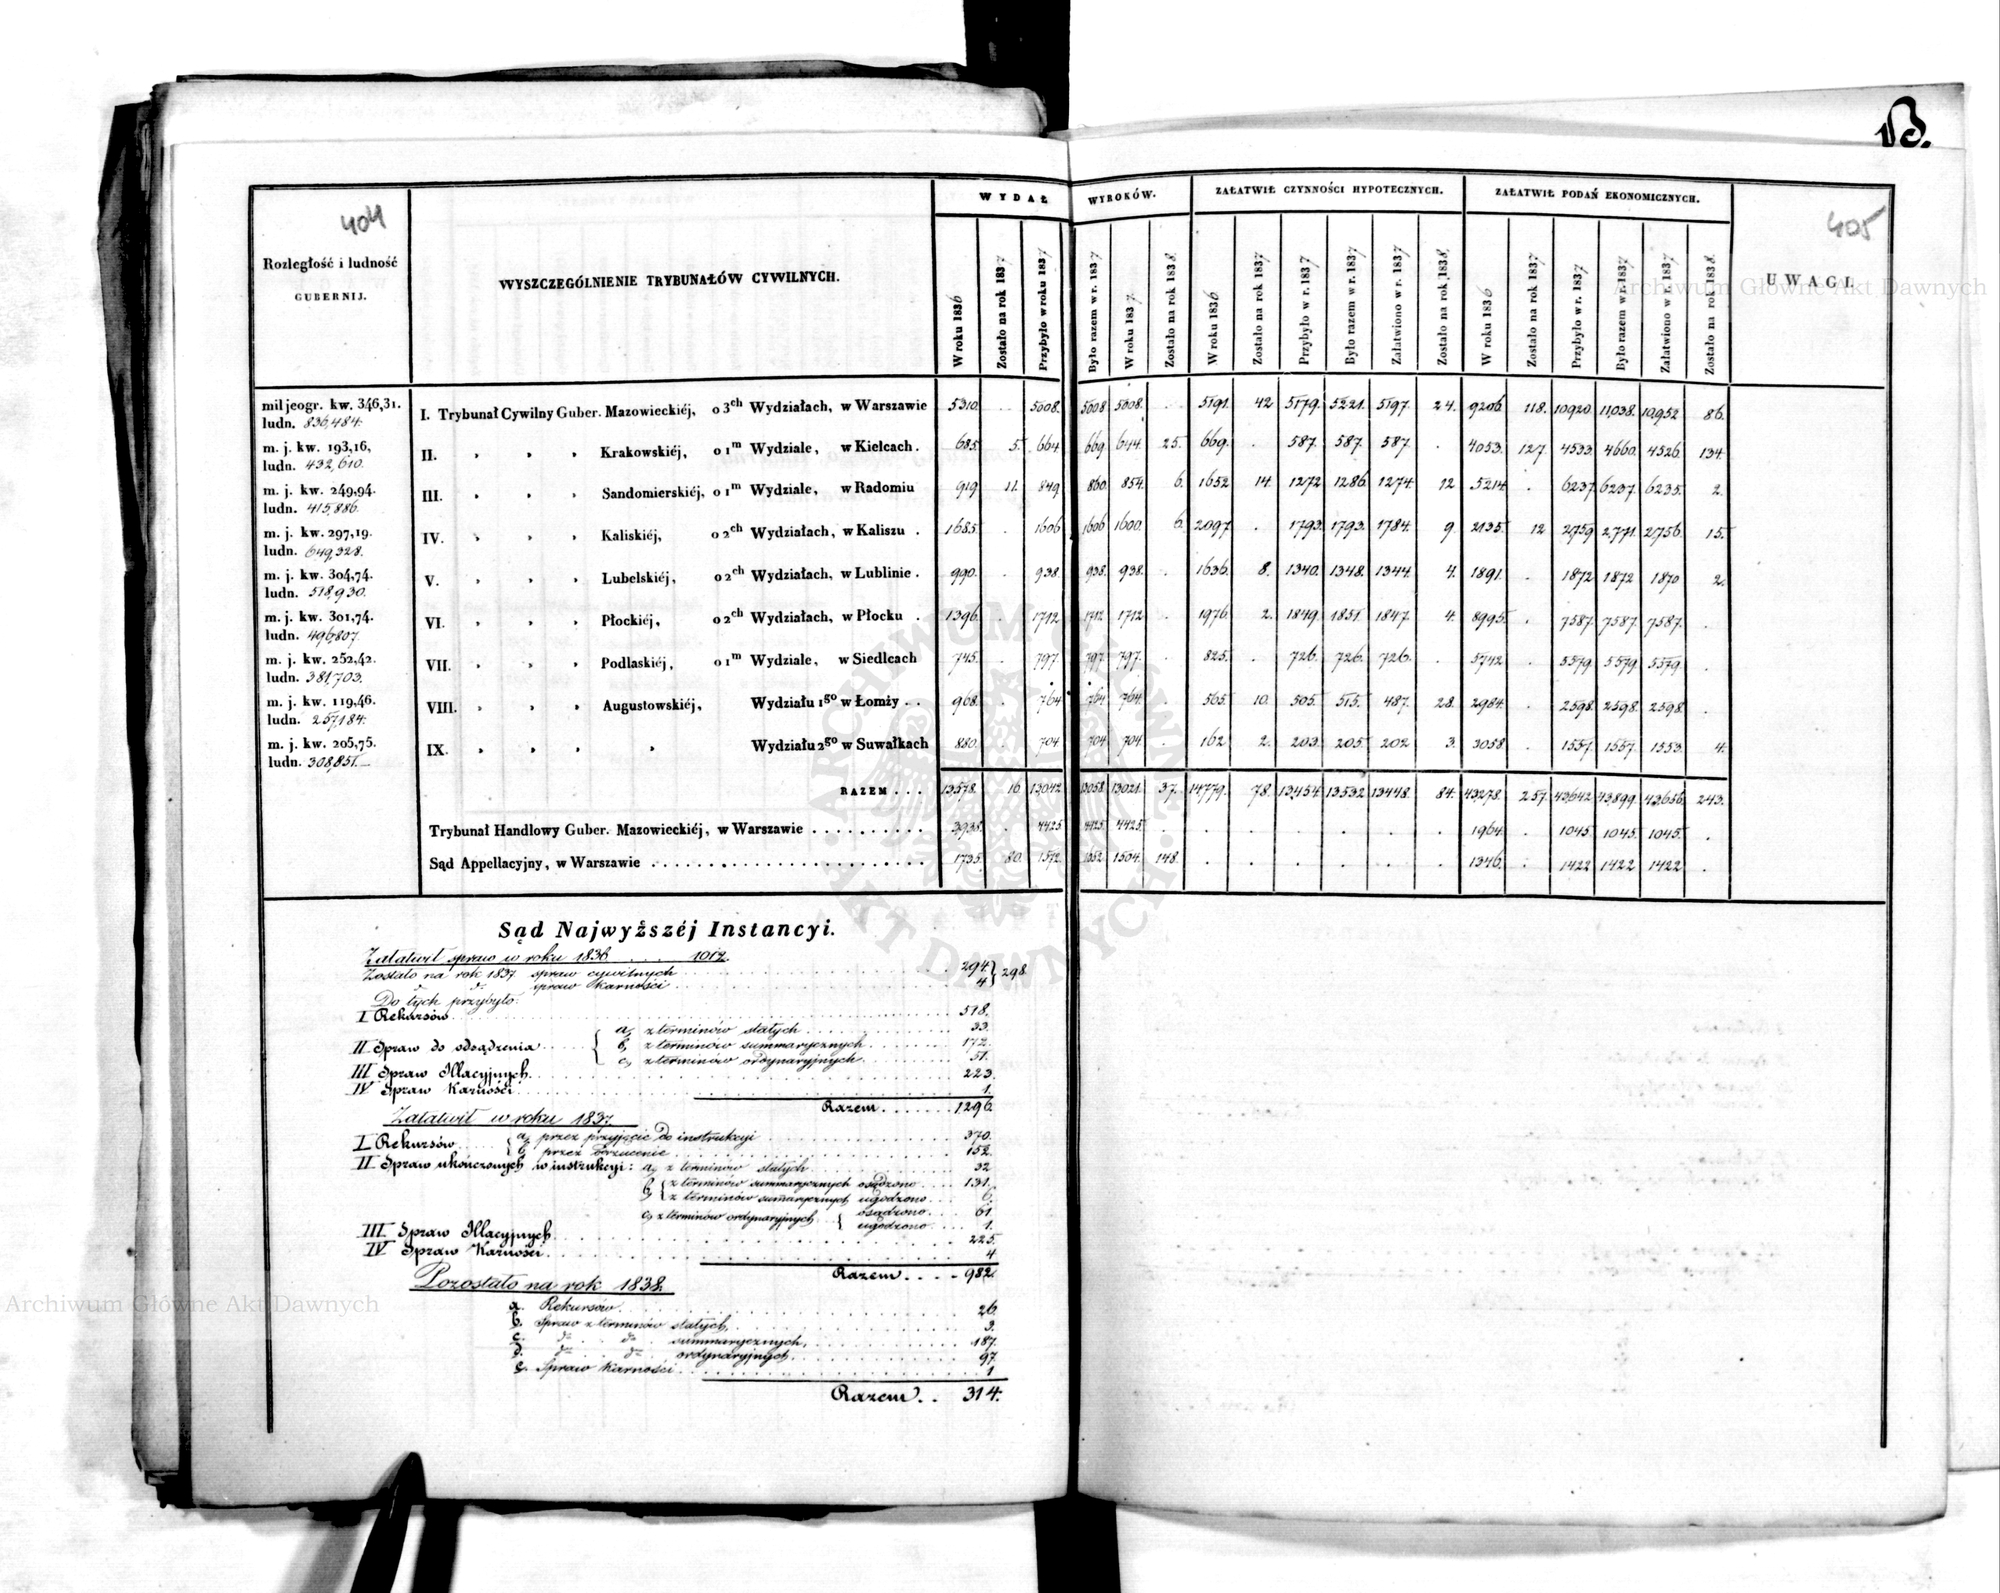 B.
404
405
Rozległość i ludność GUBERNIJ.
WYSZCZEGÓLNIENIE TRYBUNAŁÓW CYWILNYCH.
WYDAŁ WYROKÓW.
ZAŁATWIŁ CZYNNOŚCI HYPOTECZNYCH.
ZAŁATWIŁ PODAŃ EKONOMICZNYCH.
UWAGI.
W roku 1836 Zostało na rok 1837 Przybyło w roku 1837 Było razem w r. 1837 W roku 1837 Zostało na rok 1838.
W roku 1836 Zostało na rok 1837 Przybyło w r. 1837 Było razem w r. 1837 Załatwiono w r. 1837 Zostało na rok 1838.
W roku 1836 Zostało na rok 1837 Przybyło w r. 1837 Było razem w r. 1837 Załatwiono w r. 1837 Zostało na rok 1838.
mil jeogr. kw. 346,31. I. Trybunał Cywilny Guber. Mazowieckiéj, o 3ch Wydziałach, w Warszawie 5310. . 5008. 5008 5008. . 5191. 42 5179. 5221. 5197. 24. 9206. 118. 10920. 11,038. 10,952 86.
ludn. 836,484.
m. j. kw. 193,16, II. " " " Krakowskiéj, o 1m Wydziale, w Kielcach. 685. 5. 664. 669 644. 25. 669. . 587. 587. 587. . 4053. 127. 4533. 4660. 4526. 134.
ludn. 432,610.
m. j. kw. 249,94. III. " " " Sandomierskiéj, o 1m Wydziale, w Radomiu 919 11. 849 860. 854. 6. 1652 14. 1272 1286. 1274. 12 5214 . 6237. 6237. 6235. 2.
ludn. 415,886.
m. j. kw. 297,19. IV. " " " Kaliskiéj, o 2ch Wydziałach, w Kaliszu . 1685. . 1606 1606 1600. 6. 2097. . 1793. 1793. 1784. 9. 2135. 12 2,759 2,771. 2,756. 15.
ludn. 649,328.
m. j. kw. 304,74. V. " " " Lubelskiéj, o 2ch Wydziałach, w Lublinie . 990. . 938. 938. 938. . 1636. 8. 1340. 1348. 1344. 4. 1891. . 1872 1872 1870 2.
ludn. 518,930.
m. j. kw. 301,74. VI. " " " Płockiéj, o 2ch Wydziałach, w Płocku . 1396. . 1712 1712 1712. . 1976. 2. 1849. 1851. 1847. 4. 8995. . 7587. 7587. 7587. .
ludn. 496,807.
m. j. kw. 252,42. VII. " " " Podlaskiéj, o 1m Wydziale, w Siedlcach 745. . 797. 797. 797. . 825. . 726. 726. 726. . 5742 . 5579 5579 5579. .
ludn. 381,703.
m. j. kw. 119,46. VIII. " " " Augustowskiéj, Wydziału 1go w Łomży . . 968. . 764 764 764. . 565. 10. 505. 515. 487. 28. 2984. . 2598. 2598. 2598. .
ludn. 257,184.
m. j. kw. 205,75. IX. " " " " Wydziału 2go w Suwałkach 880. . 704 704 704. . 162 2. 203. 205. 202 3. 3058 . 1557. 1557. 1553. 4.
ludn. 308,851.
RAZEM . . . 13578. 16. 13,042. 13058. 13021. 37. 14,779. 78. 13,454. 13532 13448. 84. 43,278. 257. 43,642 43,899. 43,656. 243.
Trybunał Handlowy Guber. Mazowieckiéj, w Warszawie 3,935. . 4425 4425. 4425. . . . . . . . 1964. . 1045 1045. 1045. .
Sąd Appellacyjny, w Warszawie 1735. 80. 1572. 1652. 1504. 148. . . . . . . 1346. . 1422 1422 1422 .
Sąd Najwyższéj Instancyi.
Załatwił spraw w roku 1836 . . . . 1012.
Zostało na rok 1837 spraw cywilnych 294. } 298.
do do spraw karności 4
Do tych przybyło:
I Rekursów 518.
a, z terminów stałych 33.
II Spraw do osądzenia b, z terminów summarycznych 172.
c, z terminów ordynaryjnych 51.
III Spraw Illacyjnych 223.
IV Spraw Karności 1.
Razem 1296.
Załatwił w roku 1837.
I Rekursów a, przez przyjęcie do instrukcyi 370.
b, przez odrzucenie 152.
II Spraw ukończonych w instrukcyi: a, z terminów stałych 32
b, z terminów summarycznych osądzono 131.
z terminów summarycznych ugodzono 6.
c, z terminów ordynaryjnych osądzono 61
ugodzono 1.
III Spraw Illacyjnych 225.
IV Spraw Karności 4
Razem 982.
Pozostało na rok 1838.
a. Rekursów 26.
b. Spraw z terminów stałych 3.
c. do do summarycznych 187.
d. do do ordynaryjnych 97.
e. Spraw karności 1
Razem 314.
Archiwum Główne Akt Dawnych
Archiwum Główne Akt Dawnych
ARCHIWUM GŁÓWNE AKT DAWNYCH